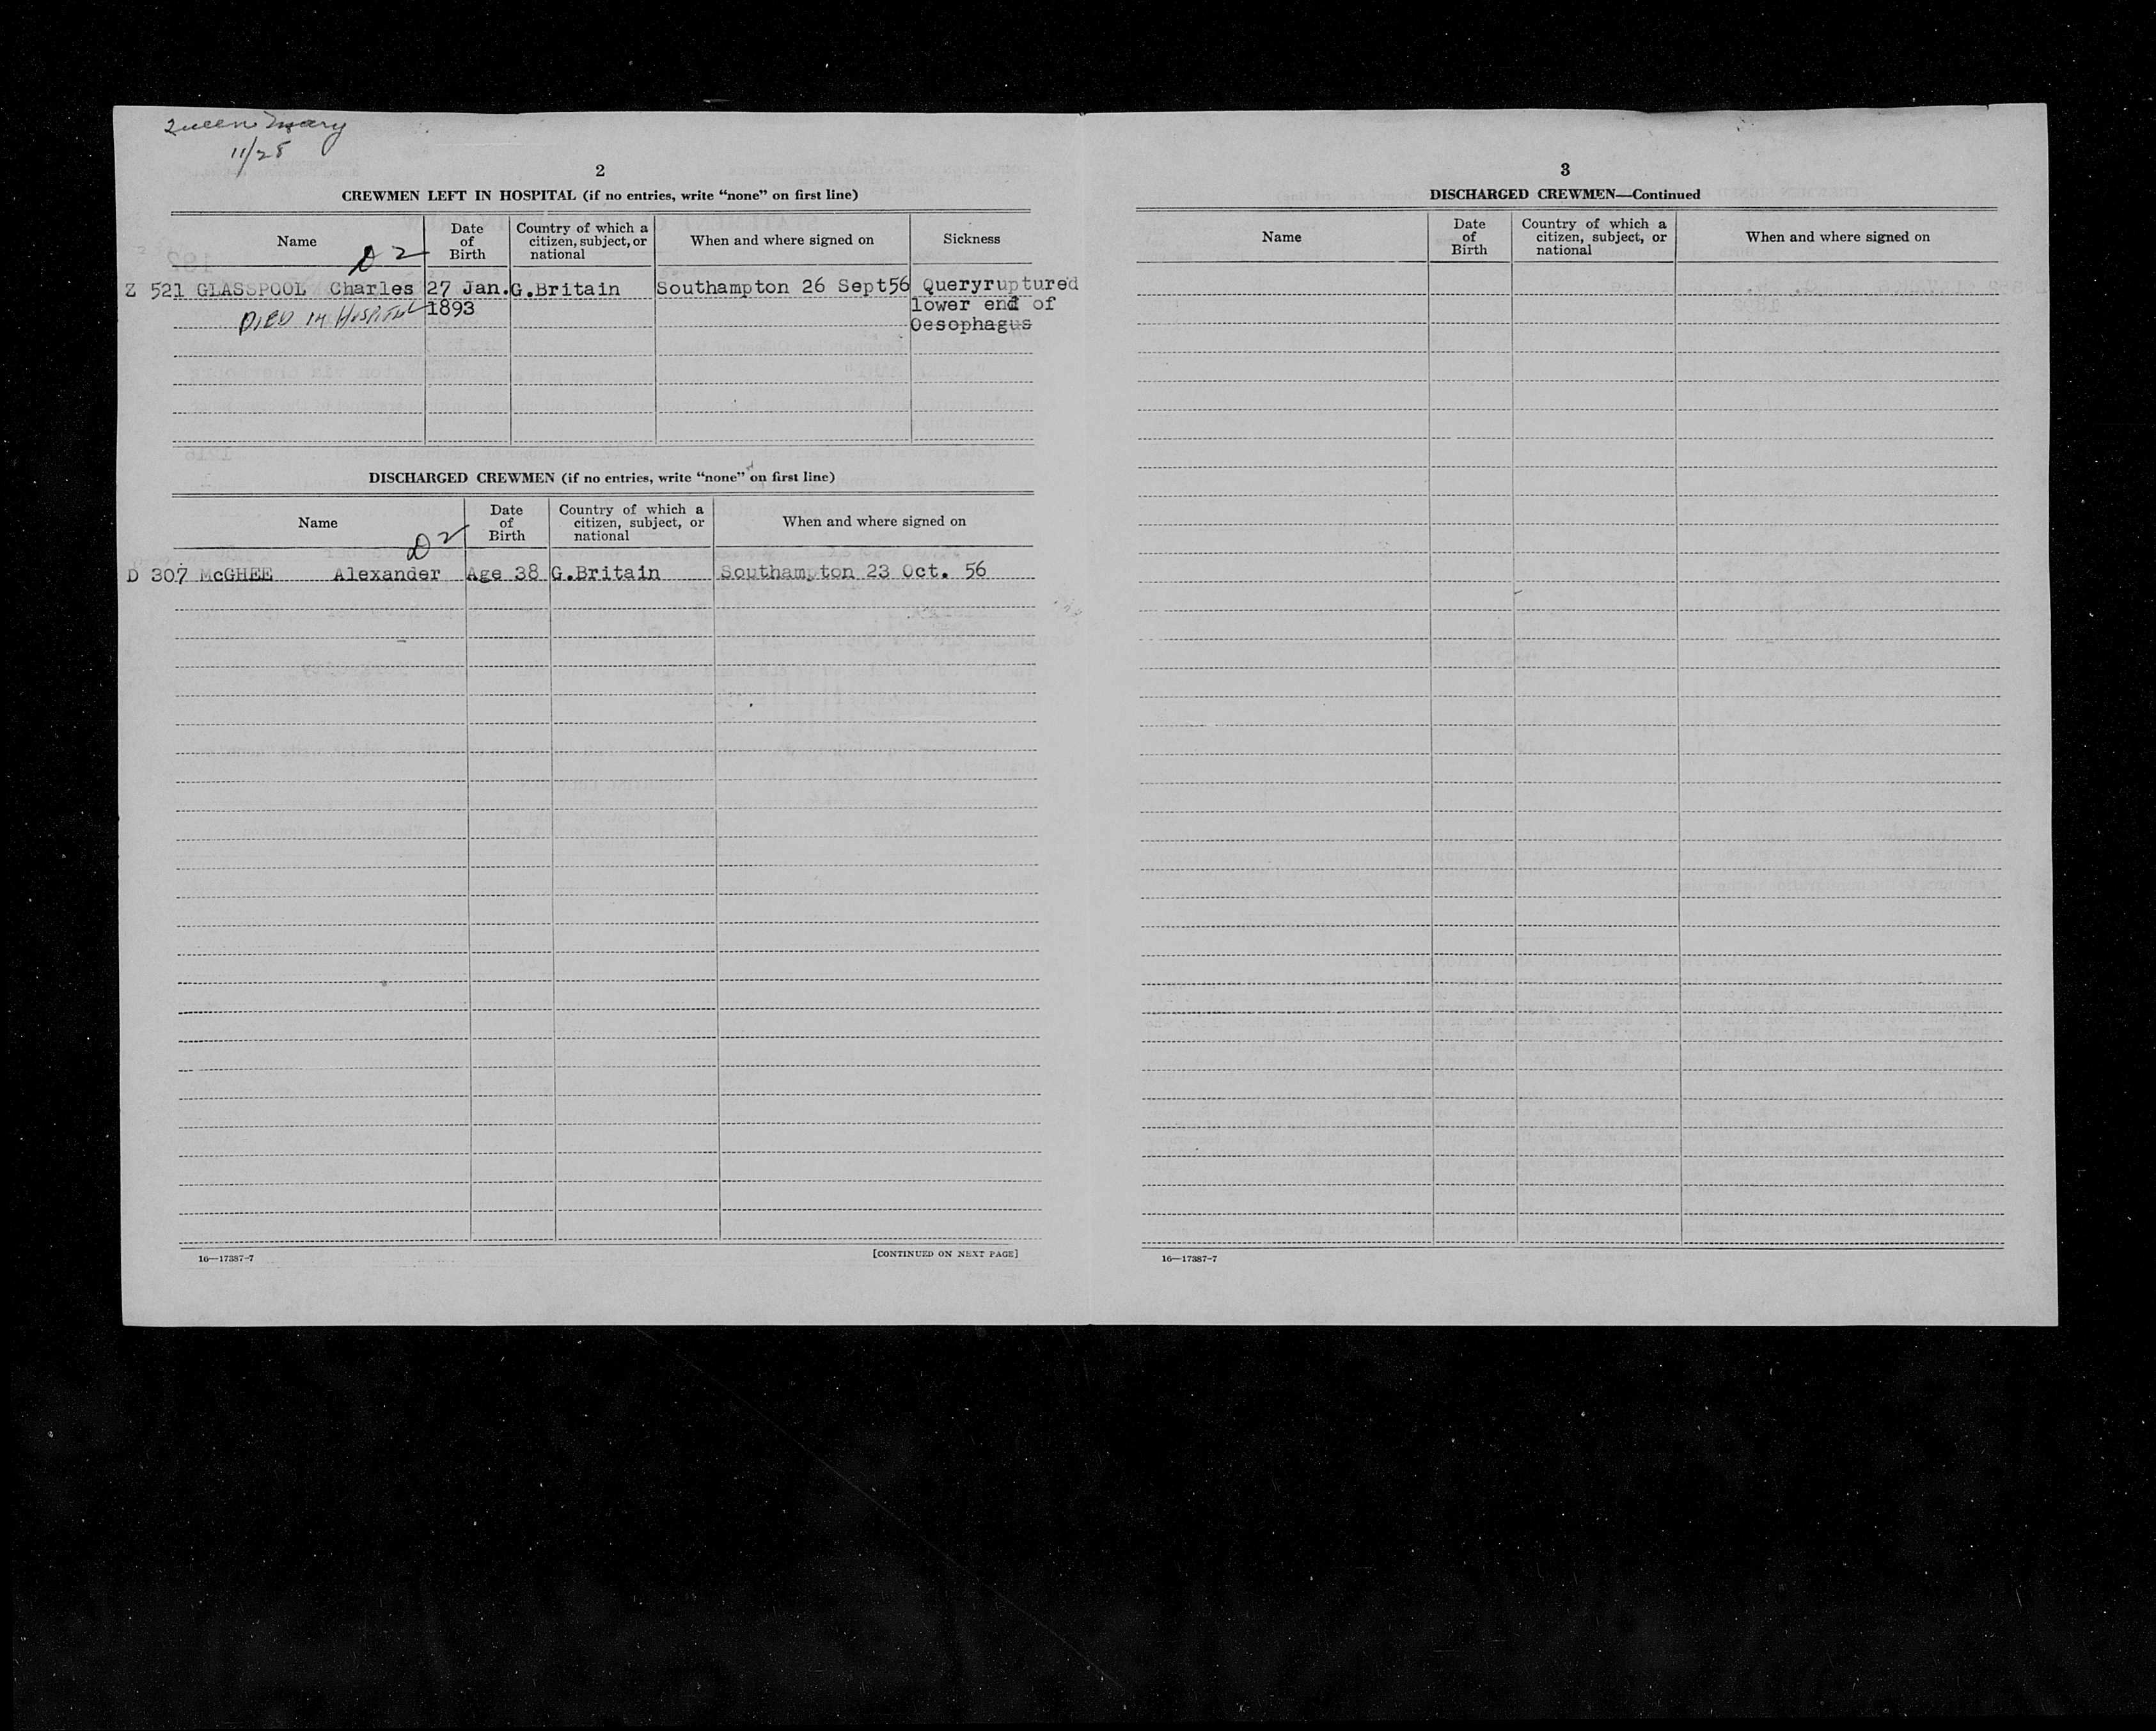 Queen Mary
11/28
2
CREWMEN LEFT IN HOSPITAL (if no entries, write “none” on first line)
Name
Date of Birth
Country of which a citizen, subject, or national
When and where signed on
Sickness
D 2
Z 521 GLASSPOOL Charles 27 Jan. G.Britain Southampton 26 Sept56 Queryruptured
DIED IN HOSPITAL 1893 lower end of
Oesophagus
DISCHARGED CREWMEN (if no entries, write “none” on first line)
Name
Date of Birth
Country of which a citizen, subject, or national
When and where signed on
D 2
D 307 McGHEE Alexander Age 38 G.Britain Southampton 23 Oct. 56
16—17387-7
[CONTINUED ON NEXT PAGE]
3
DISCHARGED CREWMEN—Continued
Name
Date of Birth
Country of which a citizen, subject, or national
When and where signed on
16—17387-7